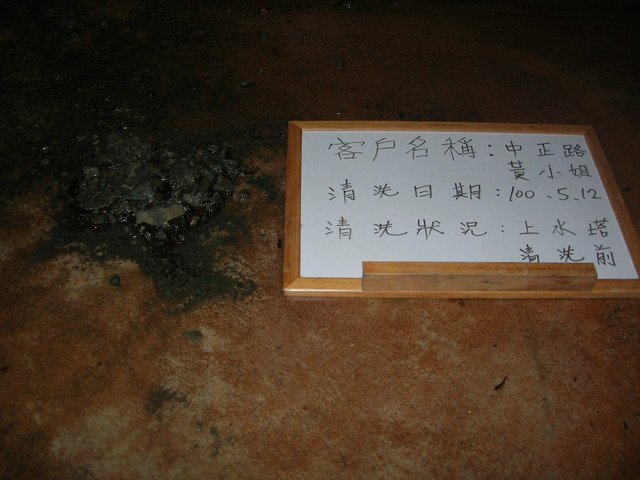 客戶名稱：中正路
黃小姐
清洗日期：100.5.12
清洗狀況：上水塔
清洗前